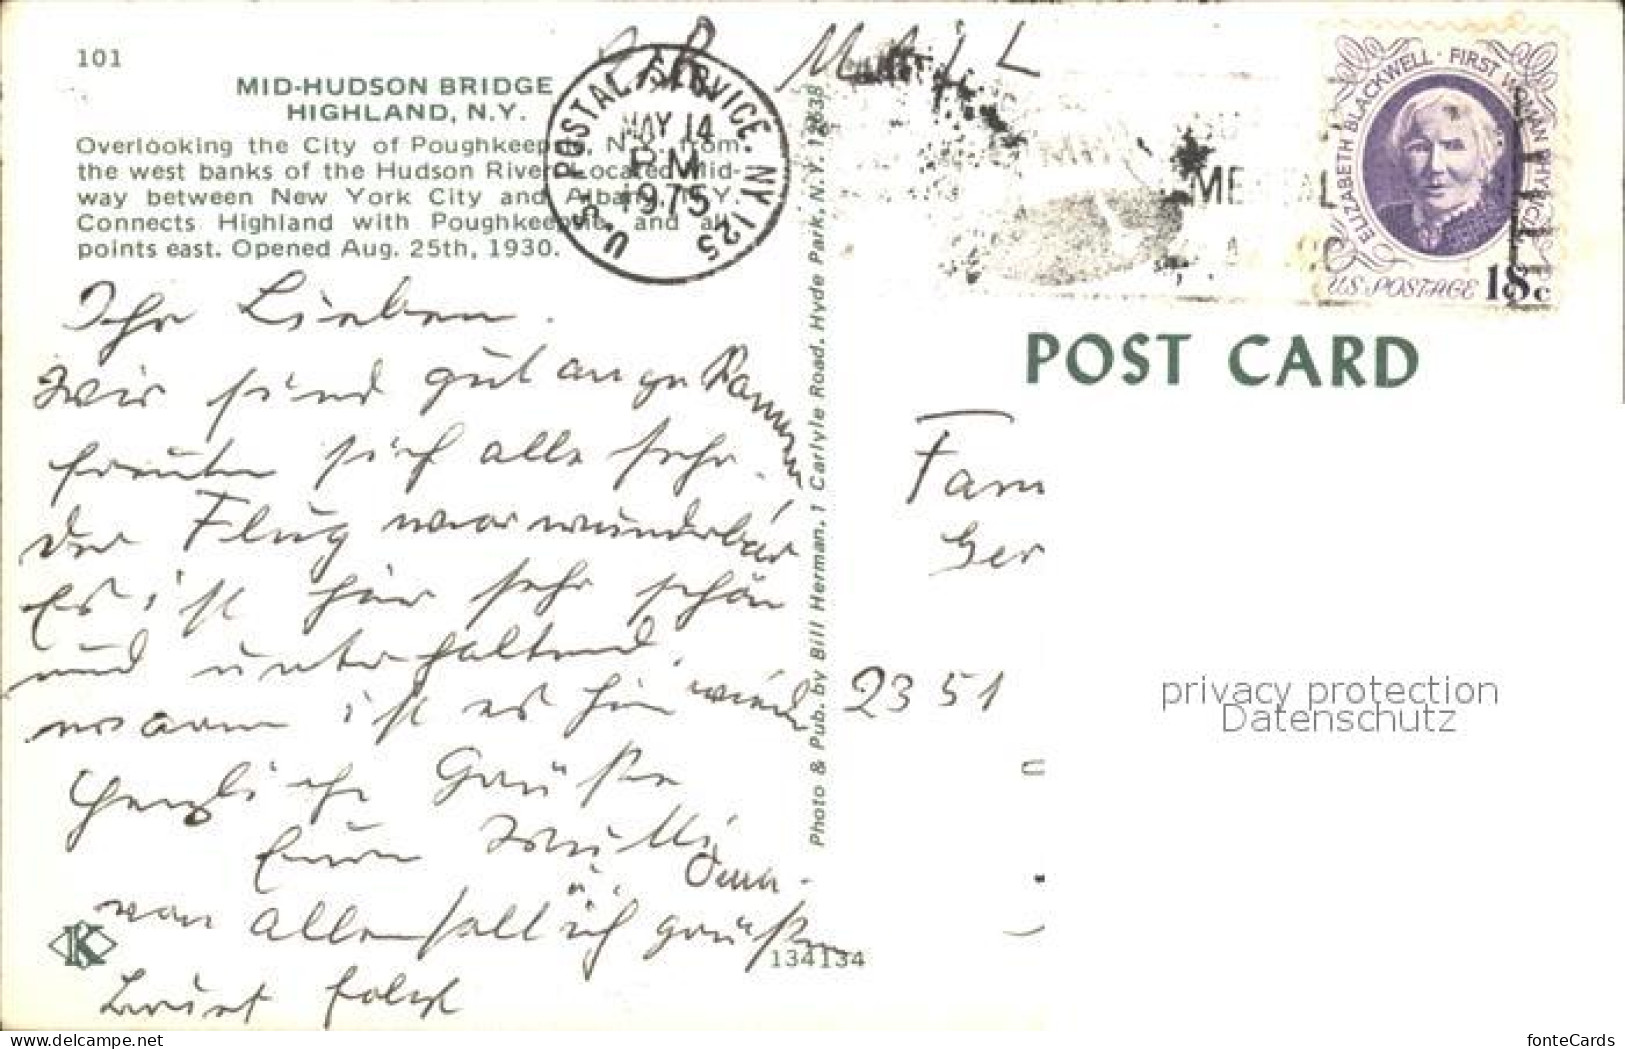 101
MID-HUDSON BRIDGE
HIGHLAND, N.Y.
Overlooking the City of Poughkeepsie, N.Y. from
the west banks of the Hudson River. Located Mid-
way between New York City and Albany, N.Y.
Connects Highland with Poughkeepsie and all
points east. Opened Aug. 25th, 1930.
U.S. POSTAL SERVICE. NY 125
MAY 14
PM
1975
MAIL
ELIZABETH BLACKWELL · FIRST WOMAN PHYSICIAN
US POSTAGE 18c
POST CARD
Ihr Lieben.
Wir sind gut angekommen
freuten sich alle sehr.
der Flug war wunderbar
Es ist hier sehr schön
und unterhaltend.
warm ist es hier
Herzliche Grüße
Eure Mutti
Oma.
von allen
Photo & Pub. by Bill Herman, 1 Carlyle Road, Hyde Park, N.Y. 12538
Fam
Ger
2351
134134
K
privacy protection
Datenschutz
www.delcampe.net
fonteCards